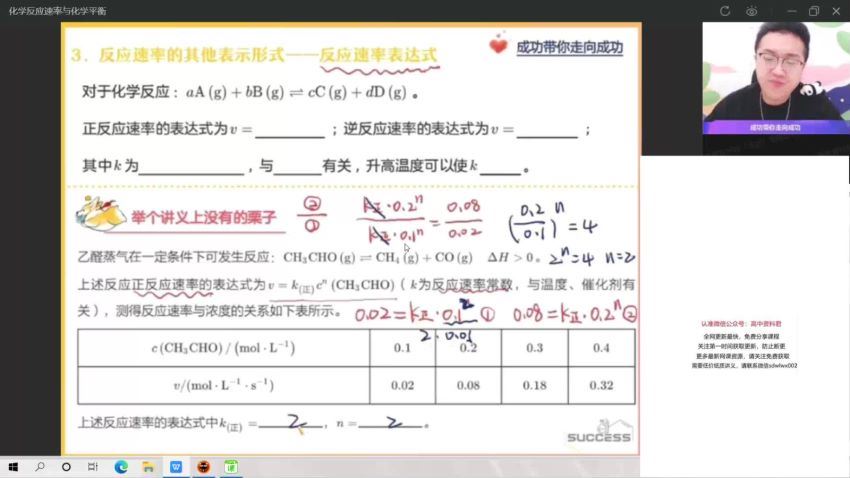 化学反应速率与化学平衡
3．反应速率的其他表示形式——反应速率表达式
成功带你走向成功
对于化学反应：aA (g) + bB (g) ⇌ cC (g) + dD (g) 。
正反应速率的表达式为 v = ________ ；逆反应速率的表达式为 v = ________ ；
其中 k 为 ________ ，与 ____ 有关，升高温度可以使 k ____ 。
成功带你走向成功
举个讲义上没有的栗子
② / ①
k正·0.2ⁿ / k正·0.1ⁿ = 0.08 / 0.02
(0.2 / 0.1)ⁿ = 4
乙醛蒸气在一定条件下可发生反应：CH₃CHO (g) ⇌ CH₄ (g) + CO (g) ΔH > 0。
2ⁿ=4 n=2
上述反应正反应速率的表达式为 v = k(正)cⁿ (CH₃CHO)（ k 为反应速率常数，与温度、催化剂有
关），测得反应速率与浓度的关系如下表所示。
0.02 = k正·0.1² ① 0.08 = k正·0.2ⁿ ②
2 · 0.01
c (CH₃CHO) / (mol · L⁻¹) 0.1 0.2 0.3 0.4
v/(mol · L⁻¹ · s⁻¹) 0.02 0.08 0.18 0.32
上述反应速率的表达式中 k(正) = 2 ，n = 2 。
SUCCESS
认准微信公众号：高中资料君
全网更新最快，免费分享课程
关注第一时间获取更新，防止断更
更多最新网课资源，请关注免费获取
需要低价纸质讲义，请联系微信sdwlwx002